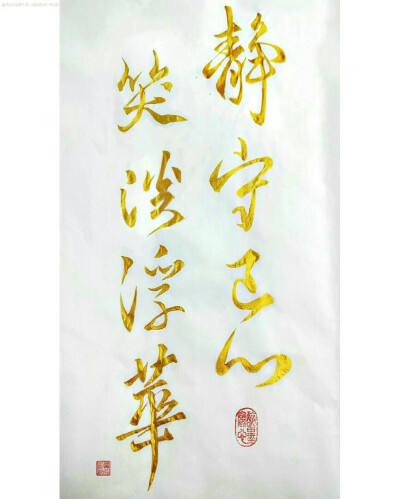 静守己心
笑淡浮华